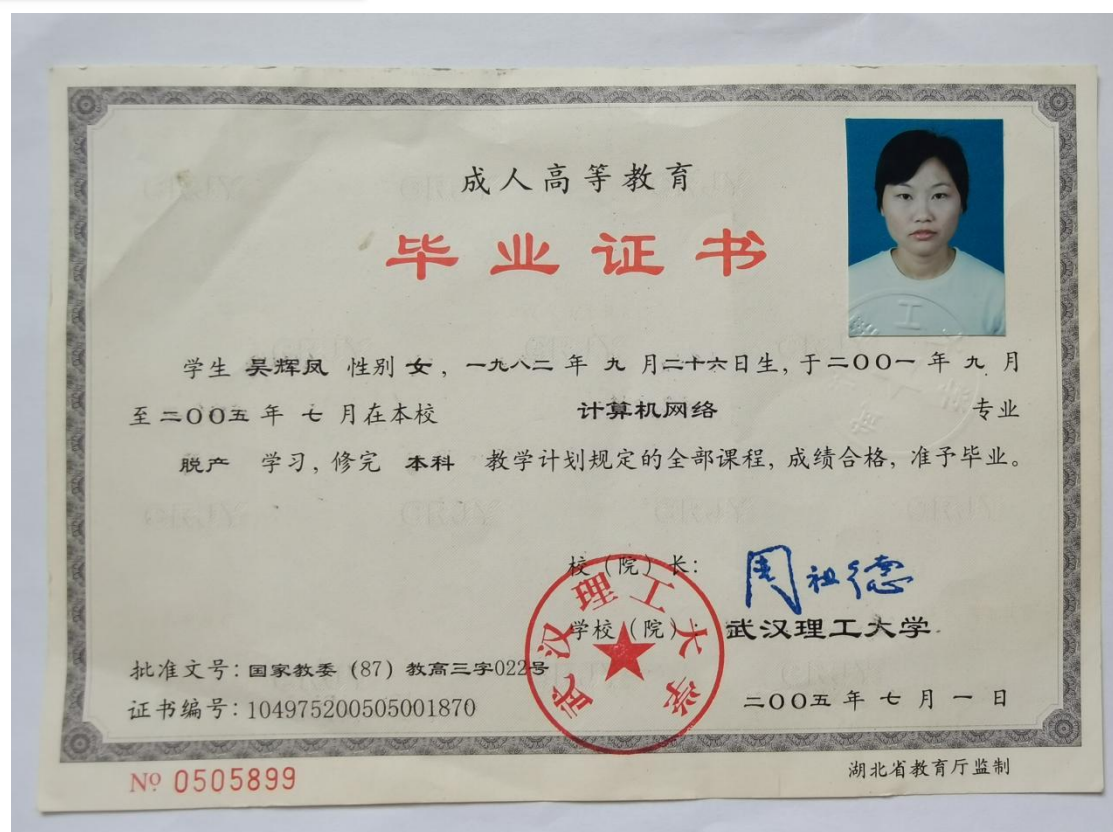 成人高等教育
毕业证书
学生 吴辉凤 性别 女，一九八二 年 九 月二十六日生，于二OO一 年 九 月
至二OO五 年 七 月在本校 计算机网络 专业
脱产 学习，修完 本科 教学计划规定的全部课程，成绩合格，准予毕业。
校（院）长：周祖德
学校（院）：武汉理工大学
武汉理工大学
批准文号：国家教委（87）教高三字022号
证书编号：104975200505001870
二OO五 年 七 月 一 日
№ 0505899
湖北省教育厅监制